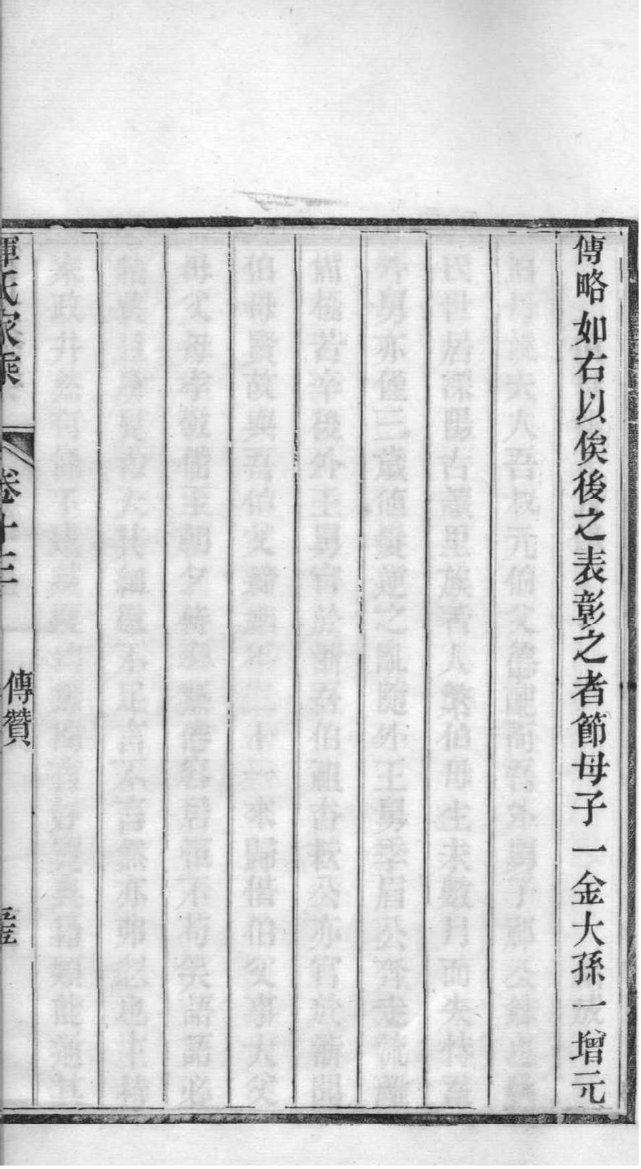 傳略如右以俟後之表彰之者節母子一金大孫一增元
惲氏家乘
卷十三
傳贊